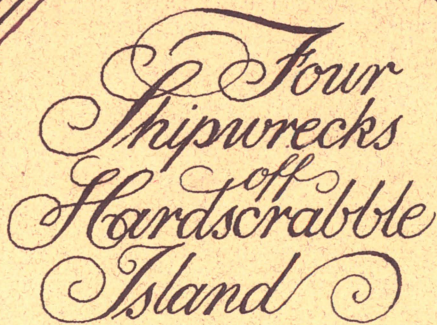 Four
Shipwrecks
off
Hardscrabble
Island